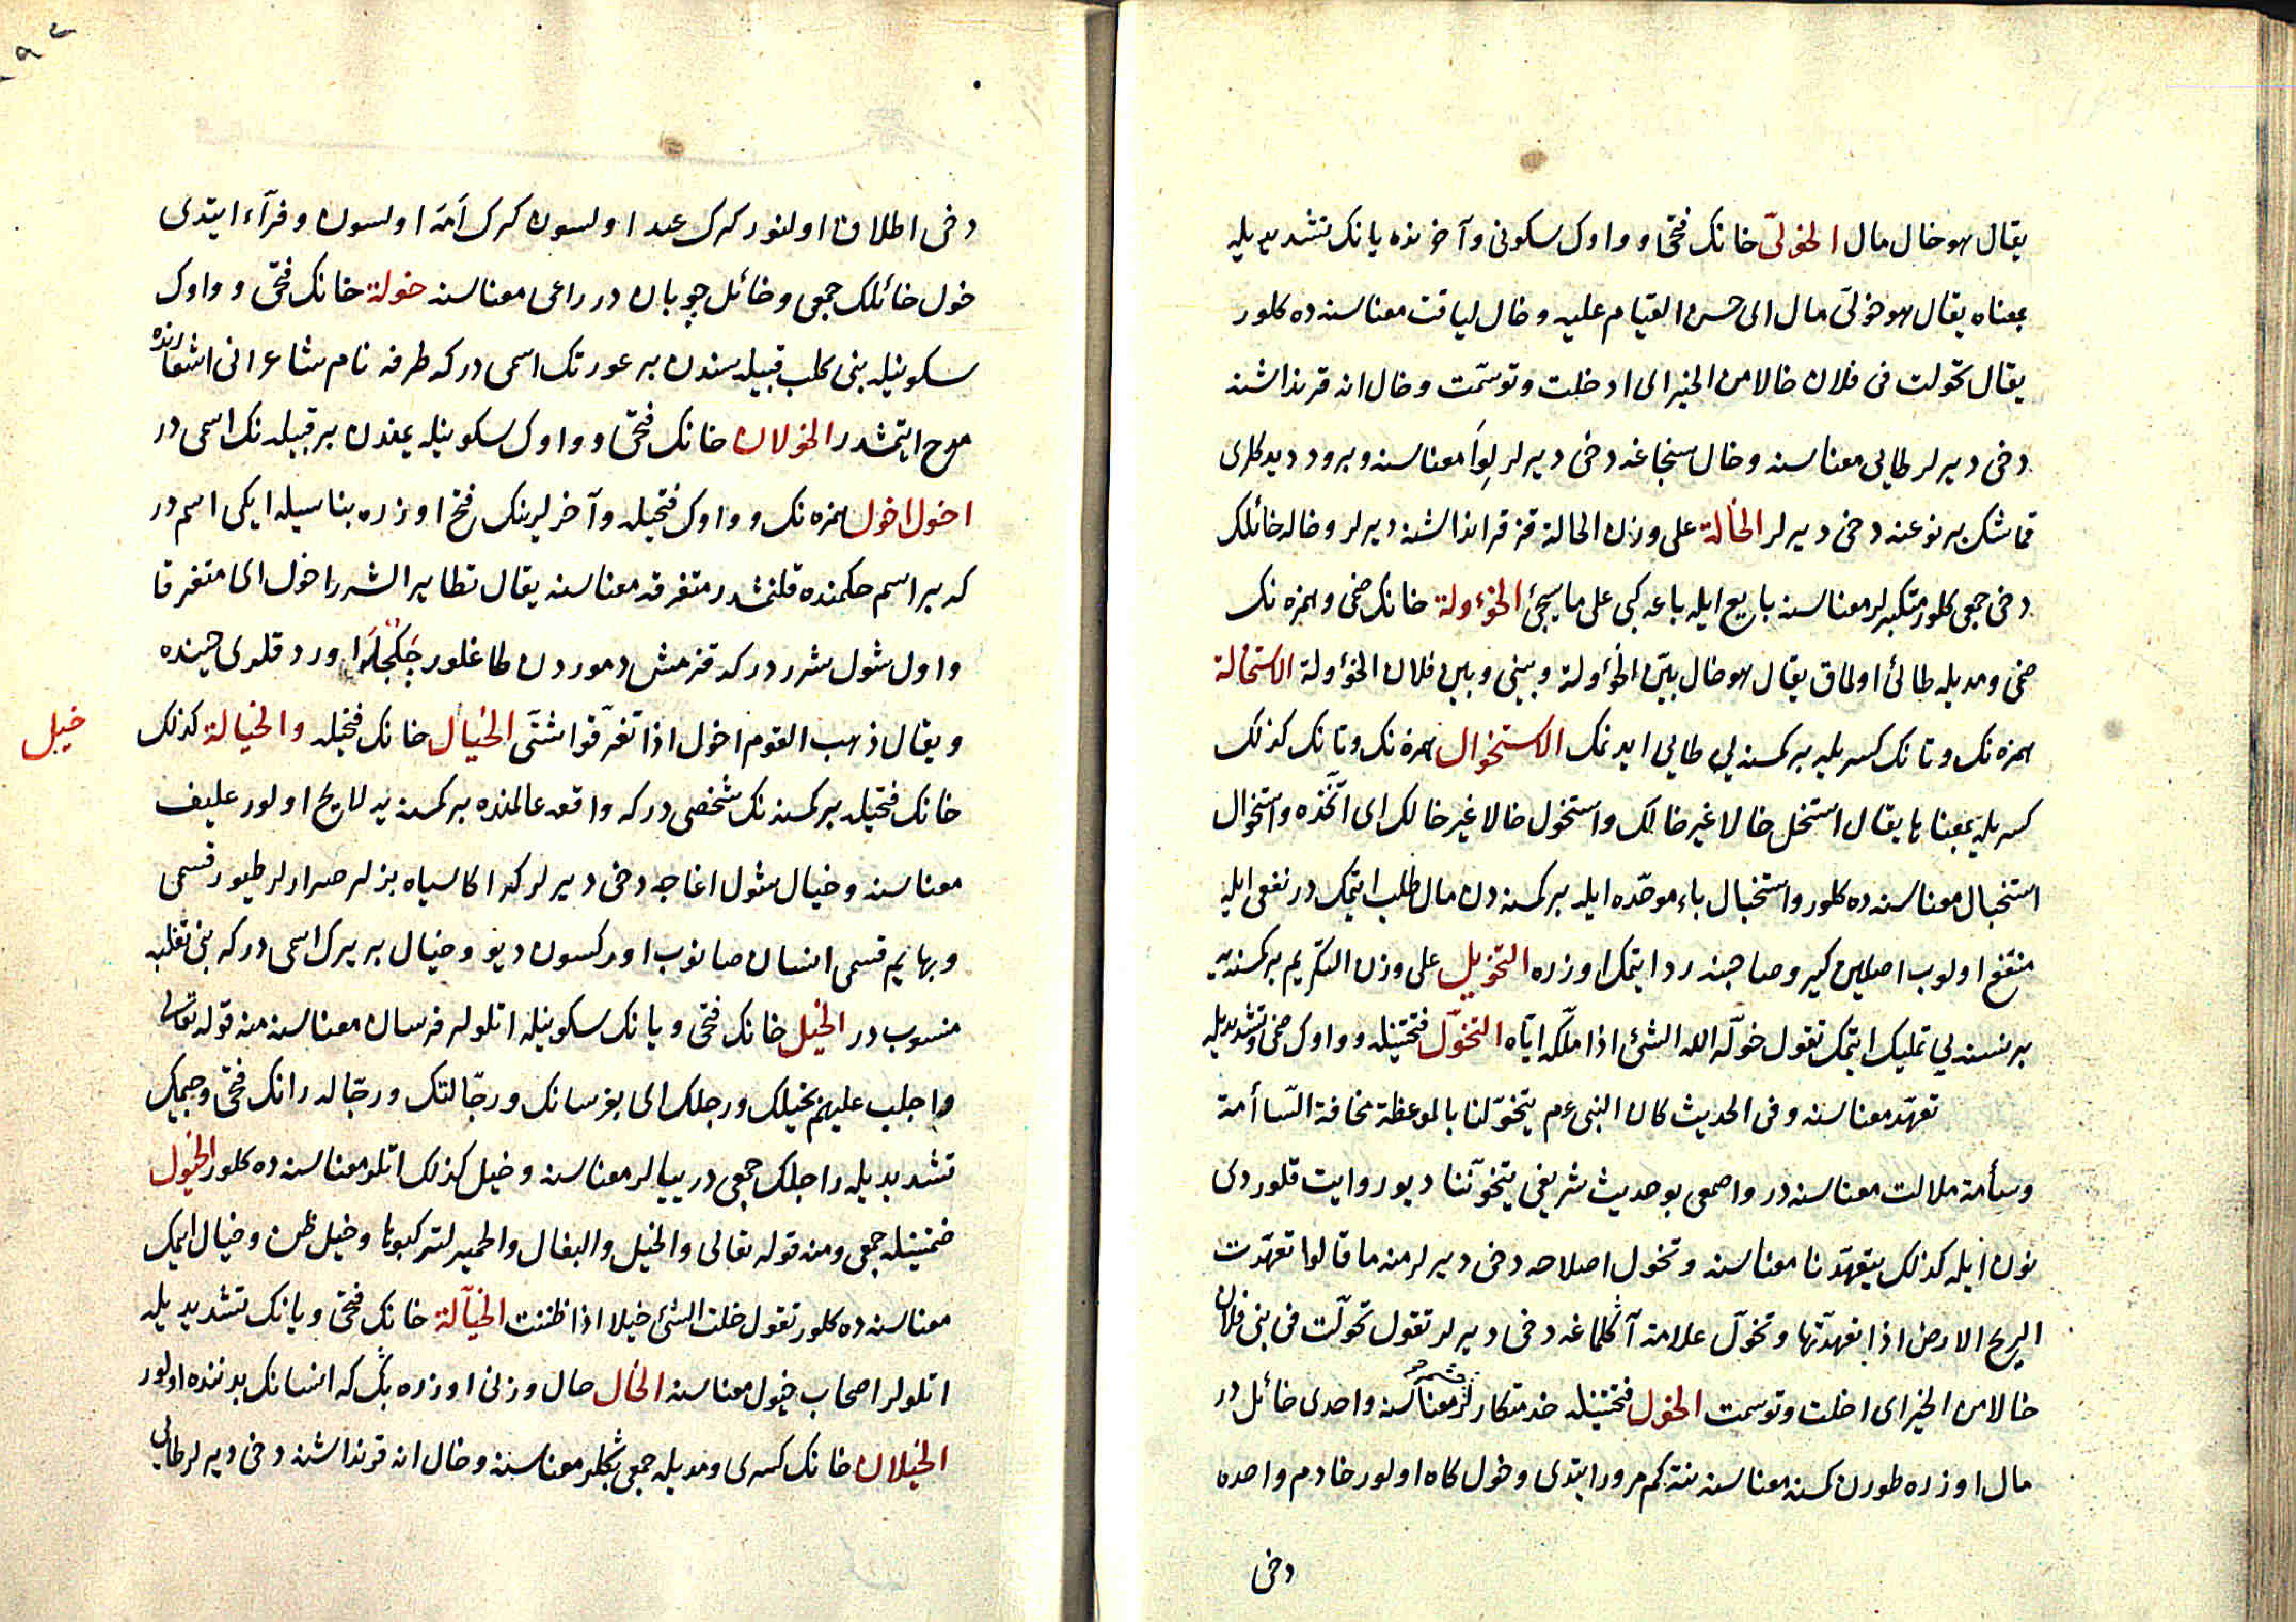 يقال هو خال مال الخولىّ خانك فتحى و واوك سكونى و آخرنده يانك تشديديله
بمعناه يقال هو خولىّ مال اى حسن القيام عليه و خال لياقت معناسنه ده كلور
يقال تخولت فى فلان خالا من الخير اى ادخلت و توسّمت و خال انه قرنداشنه
دخى ديرلر طايى معناسنه و خال سنجاغه دخى ديرلر لِواَ معناسنه و برود ديدكلرى
قماشك بر نوعنه دخى ديرلر الخالة على وزن الحالة قز قرانداشنه ديرلر و خاله خائلك
دخى جمعى كلور متكبرلر معناسنه بايع ايله باعه كبى على ما سيجئ الخؤولة خانك ضمى و همزه نك
ضمى و مديله طائى اولماق يقال هو خال بيّن الخؤولة و بينى و بين فلان الخؤولة الاستخالة
همزه نك و تانك كسريله بر كمسنه يى طايى ايدنمك الاستخوال همزه نك و تانك كذلك
كسريله بمعناها يقال استخل خالا غير خالك و استخول خالا غير خالك اى اتّخذه و استخوال
استخبال معناسنه ده كلور و استخبال باء موحّده ايله بر كمسنه دن مال طلب ايتمك در نفعى ايله
منتفع اولوب اصلين كيرو صاحبنه ردّ ايتمك اوزره التخويل على وزن التكريم بر كمسنه يه
بر نسنه يى تمليك ايتمك تقول خوّله الله الشئ اذا ملّكه ايّاه التخوّل فتحتينله و واوك ضمى و تشديديله
تعهّد معناسنه و فى الحديث كان النبى عم يتخوّلنا بالموعظة مخافة السّأمة
و سأمة ملالت معناسنه در و اصمعى بو حديث شريفى يتخوّننا ديو روايت قلوردى
نون ايله كذلك يتعهّدنا معناسنه و تخول اصلاحه دخى ديرلر منه ما قالوا تعهّدت
الريح الارض اذا تعهدّتها و تخوّل علامة آكلماغه دخى ديرلر تقول تخوّلت فى بنى فلان
خالا من الخير اى اخلت و توسمت الخول فتحتينله خدمتكارلر معناسنه و احدى خائل در
مال اوزره طورن كمسنه معناسنه نته كم مرور ايتدى و خول كاه اولور خادم واحده
دخى
دخى اطلاق اولنور كرك عبد اولسون كرك اَمَة اولسون و فرآء ايتدى
خول خائلك جمعى و خائل چوبان در راعى معناسنه خولة خانك فتحى و واوك
سكونيله بنى كلب قبيله سندن بر عورتك اسمى در كه طرفه نام شاعر انى اشعارنده
مدح ايتمشدر الخولان خانك فتحى و واوك سكونيله يمندن بر قبيله نك اسمى در
اخول اخول همزه نك و واوك فتحيله و آخرلرينك فتح اوزره بناسيله ايكى اسم در
كه بر اسم حكمنده قلنمشدر متفرقه معناسنه يقال تطاير الشرر اخول اى متفرقا
و اول شول شرردر كه قزمش دموردن طاغلور چكجله اورد قلرى حينده
و يقال ذهب القوم اخول اذا تفرّقوا شتّى الخيال خانك فتحيله و الخيالة كذلك
خيل
خانك فتحيله بر كمسنه نك شخصى در كه واقعه عالمنده بر كمسنه يه لايح اولور عليف
معناسنه و خيال شول اغاجه دخى ديرلر كه اكا سياه بزلر صرارلر طيور قسمى
و بهايم قسمى انسان صانوب اوركسون ديو و خيال بر يرك اسمى در كه بنى تغلبه
منسوب در الخيل خانك فتحى و يانك سكونيله اتلولر فرسان معناسنه منه قوله تعالى
و اجلب عليهم بخيلك و رجلك اى بفرسانك و رجّالتك و رجّاله رانك فتحى و جيمك
تشديديله راجلك جمعى در ييالر معناسنه و خيل كذلك اتلو معناسنه ده كلور الخيول
ضمتينله جمعى و منه قوله تعالى و الخيل و البغال و الحمير لتركبوها و خيل ظن و خيال ايلمك
معناسنه ده كلور تقول خلت الشئ خيلا اذا ظننت الخيّالة خانك فتحى و يانك تشديديله
اتلولر اصحاب خيول معناسنه الخال حال وزنى اوزره بك كه انسانك بدننده اولور
الخيلان خانك كسرى و مديله جمعى بكلر معناسنه و خال انه قرنداشنه دخى ديرلر طايى